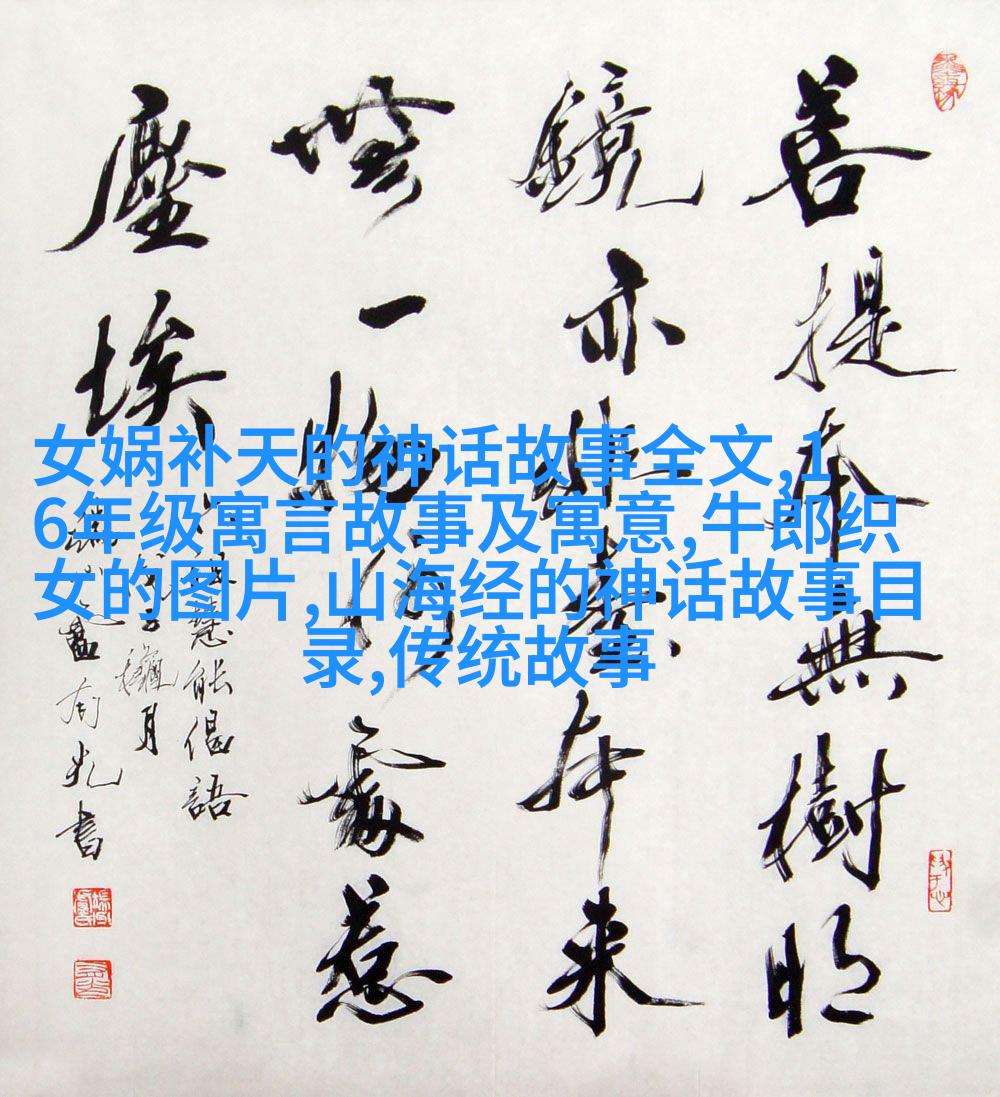 菩提本無樹明
鏡亦非臺本來
無一物何處惹
塵埃
慧能偈語
月
有光書
女娲补天的神话故事全文,1
6年级寓言故事及寓意,牛郎织
女的图片,山海经的神话故事目
录,传统故事